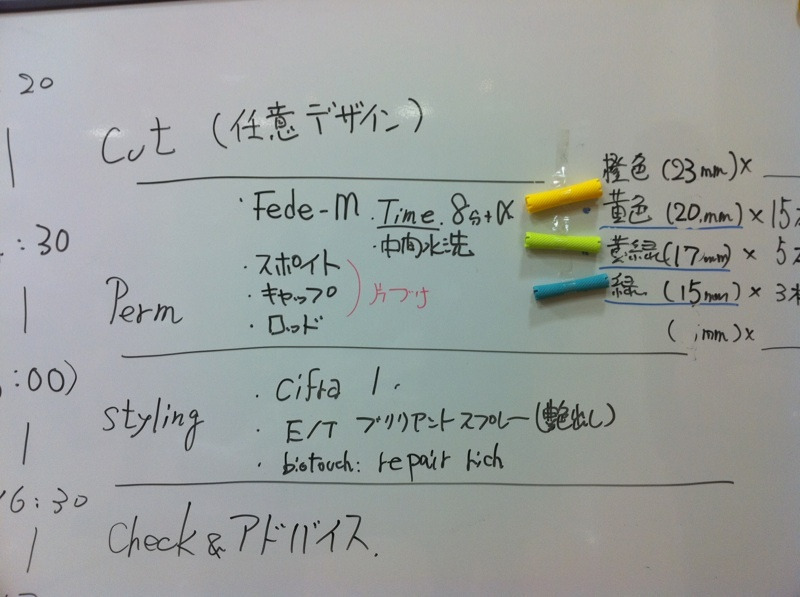 20
Cut (任意デザイン)
橙色 (23mm)×
・Fede-M ・Time 8分+α
黄色 (20mm) × 15本
:30
・中間水洗
黄緑(17mm) × 5本
・スポイト
Perm
・キャップ
片づけ
緑 (15mm) × 3本
・ロッド
( mm)×
:00)
styling
・Cifra 1.
・E/T ブリリアントスプレー(艶出し)
・biotouch: repair rich
16:30
Check & アドバイス.